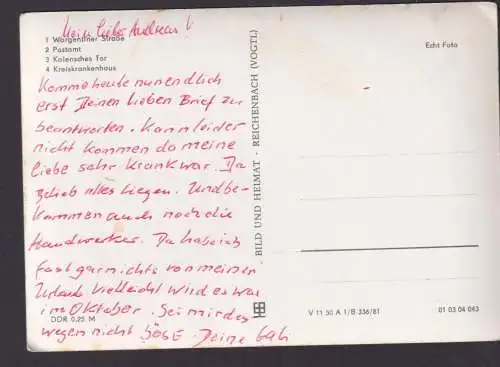 Mein lieber Andreas!
1 Wargentiner Straße
2 Postamt
3 Kalensches Tor
4 Kreiskrankenhaus
Echt Foto
Komme heute nun endlich
erst Deinen lieben Brief zu
beantworten. Kann leider
nicht kommen da meine
liebe sehr Krank war. Da
blieb alles liegen. Und be-
kommen auch noch die
Handwerker. Da habe ich
fast gar nichts von meinen
Urlaub vielleicht wird es was
im Oktober. Sei mir des
wegen nicht BÖSE. Deine
BILD UND HEIMAT · REICHENBACH (VOGTL)
DDR 0,25 M
V 11 50 A 1/B 336/81
01 03 04 043